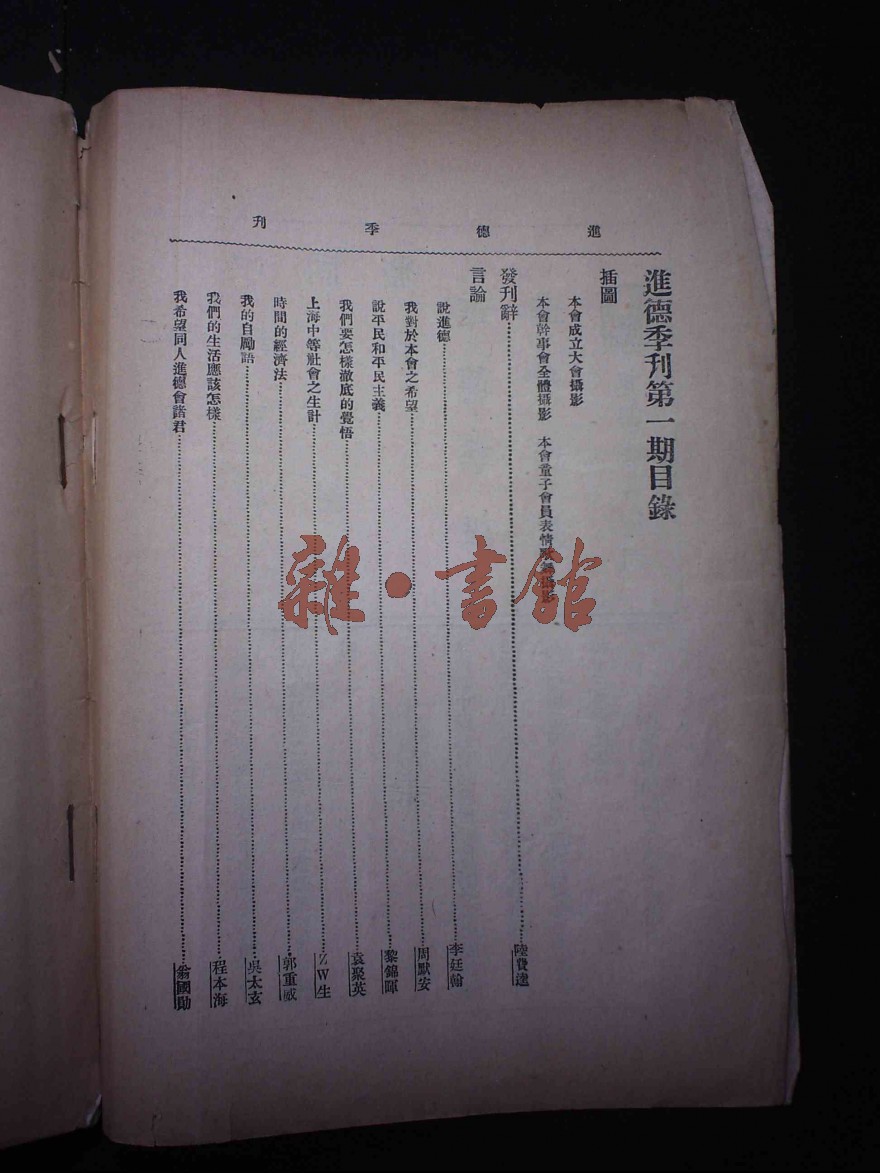 進德季刊
進德季刊第一期目錄
插圖
本會成立大會攝影
本會幹事會全體攝影 本會童子會員表情
發刊辭⋯⋯陸費逵
言論
說進德⋯⋯李廷翰
我對於本會之希望⋯⋯周默安
說平民和平民主義⋯⋯黎錦暉
我們要怎樣澈底的覺悟⋯⋯袁聚英
上海中等社會之生計⋯⋯ZW生
時間的經濟法⋯⋯郭重威
我的自勵語⋯⋯吳太玄
我們的生活應該怎樣⋯⋯程本海
我希望同人進德會諸君⋯⋯翁國勛
雜·書館